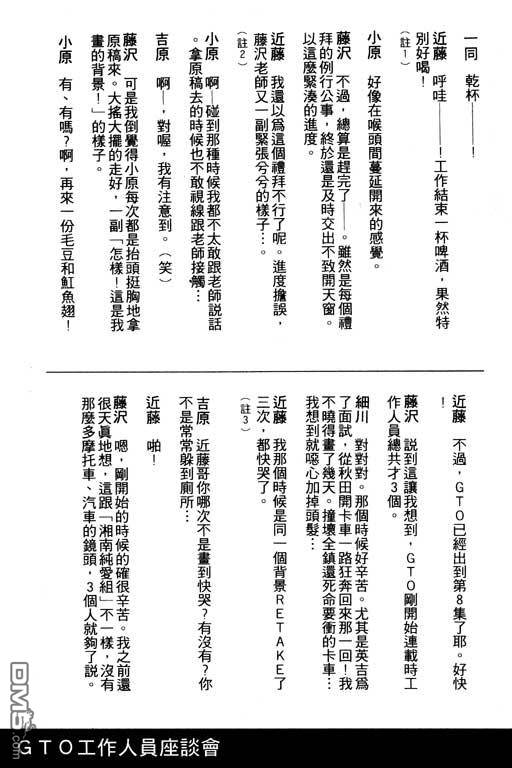 一同　乾杯———！
近藤　呼哇———！工作結束一杯啤酒，果然特
別好喝！
（註1）
小原　好像在喉頭間蔓延開來的感覺。
藤沢　不過，總算是趕完了——。雖然是每個禮
拜的例行公事，終於還是及時交出不致開天窗。
以這麼緊湊的進度。
近藤　我還以為這個禮拜不行了呢。進度擔誤，
藤沢老師又一副緊張兮兮的樣子…。
（註2）
小原　啊—碰到那種時候我都不太敢跟老師說話
。拿原稿去的時候也不敢視線跟老師接觸…
吉原　啊—，對喔，我有注意到。（笑）
藤沢　可是我倒覺得小原每次都是抬頭挺胸地拿
原稿來。大搖大擺的走好，一副「怎樣！這是我
畫的背景！」的樣子。
小原　有、有嗎？啊，再來一份毛豆和魟魚翅！
近藤　不過，GTO已經出到第8集了耶。好快
！
藤沢　說到這讓我想到，GTO剛開始連載時工
作人員總共才3個。
細川　對對對。那個時候好辛苦。尤其是英吉為
了面試，從秋田開卡車一路狂奔回來那一回！我
不曉得畫了幾天。撞壞全鎮還死命要衝的卡車…
我想到就噁心加掉頭髮…
近藤　我那個時候是同一個背景RETAKE了
三次，都快哭了。
（註3）
吉原　近藤哥你哪次不是畫到快哭？有沒有？你
不是常常躲到廁所…
近藤　啪！
藤沢　嗯，剛開始的時候的確很辛苦。我之前還
很天真地想，這跟「湘南純愛組」不一樣，沒有
那麼多摩托車、汽車的鏡頭，3個人就夠了說。
GTO工作人員座談會
DM5.com